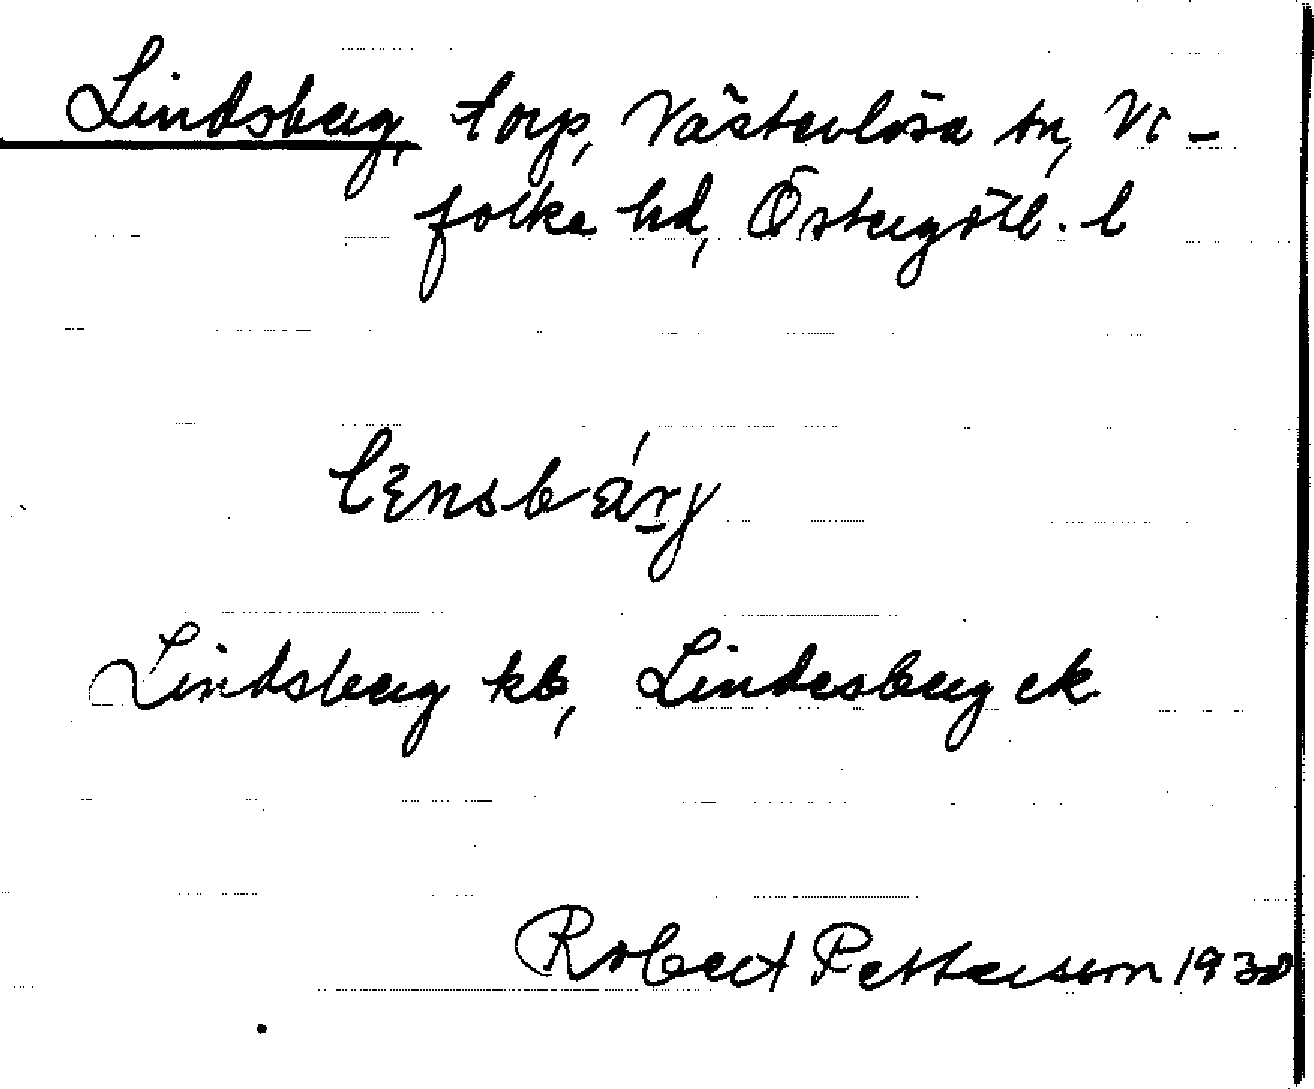 Lindsberg, torp, Västerlösa sn, Vi-
folke hd, Östergötl. l
lɛnsbárj
Lindsberg kb, Lindesberg ek
Robert Petterson 1930